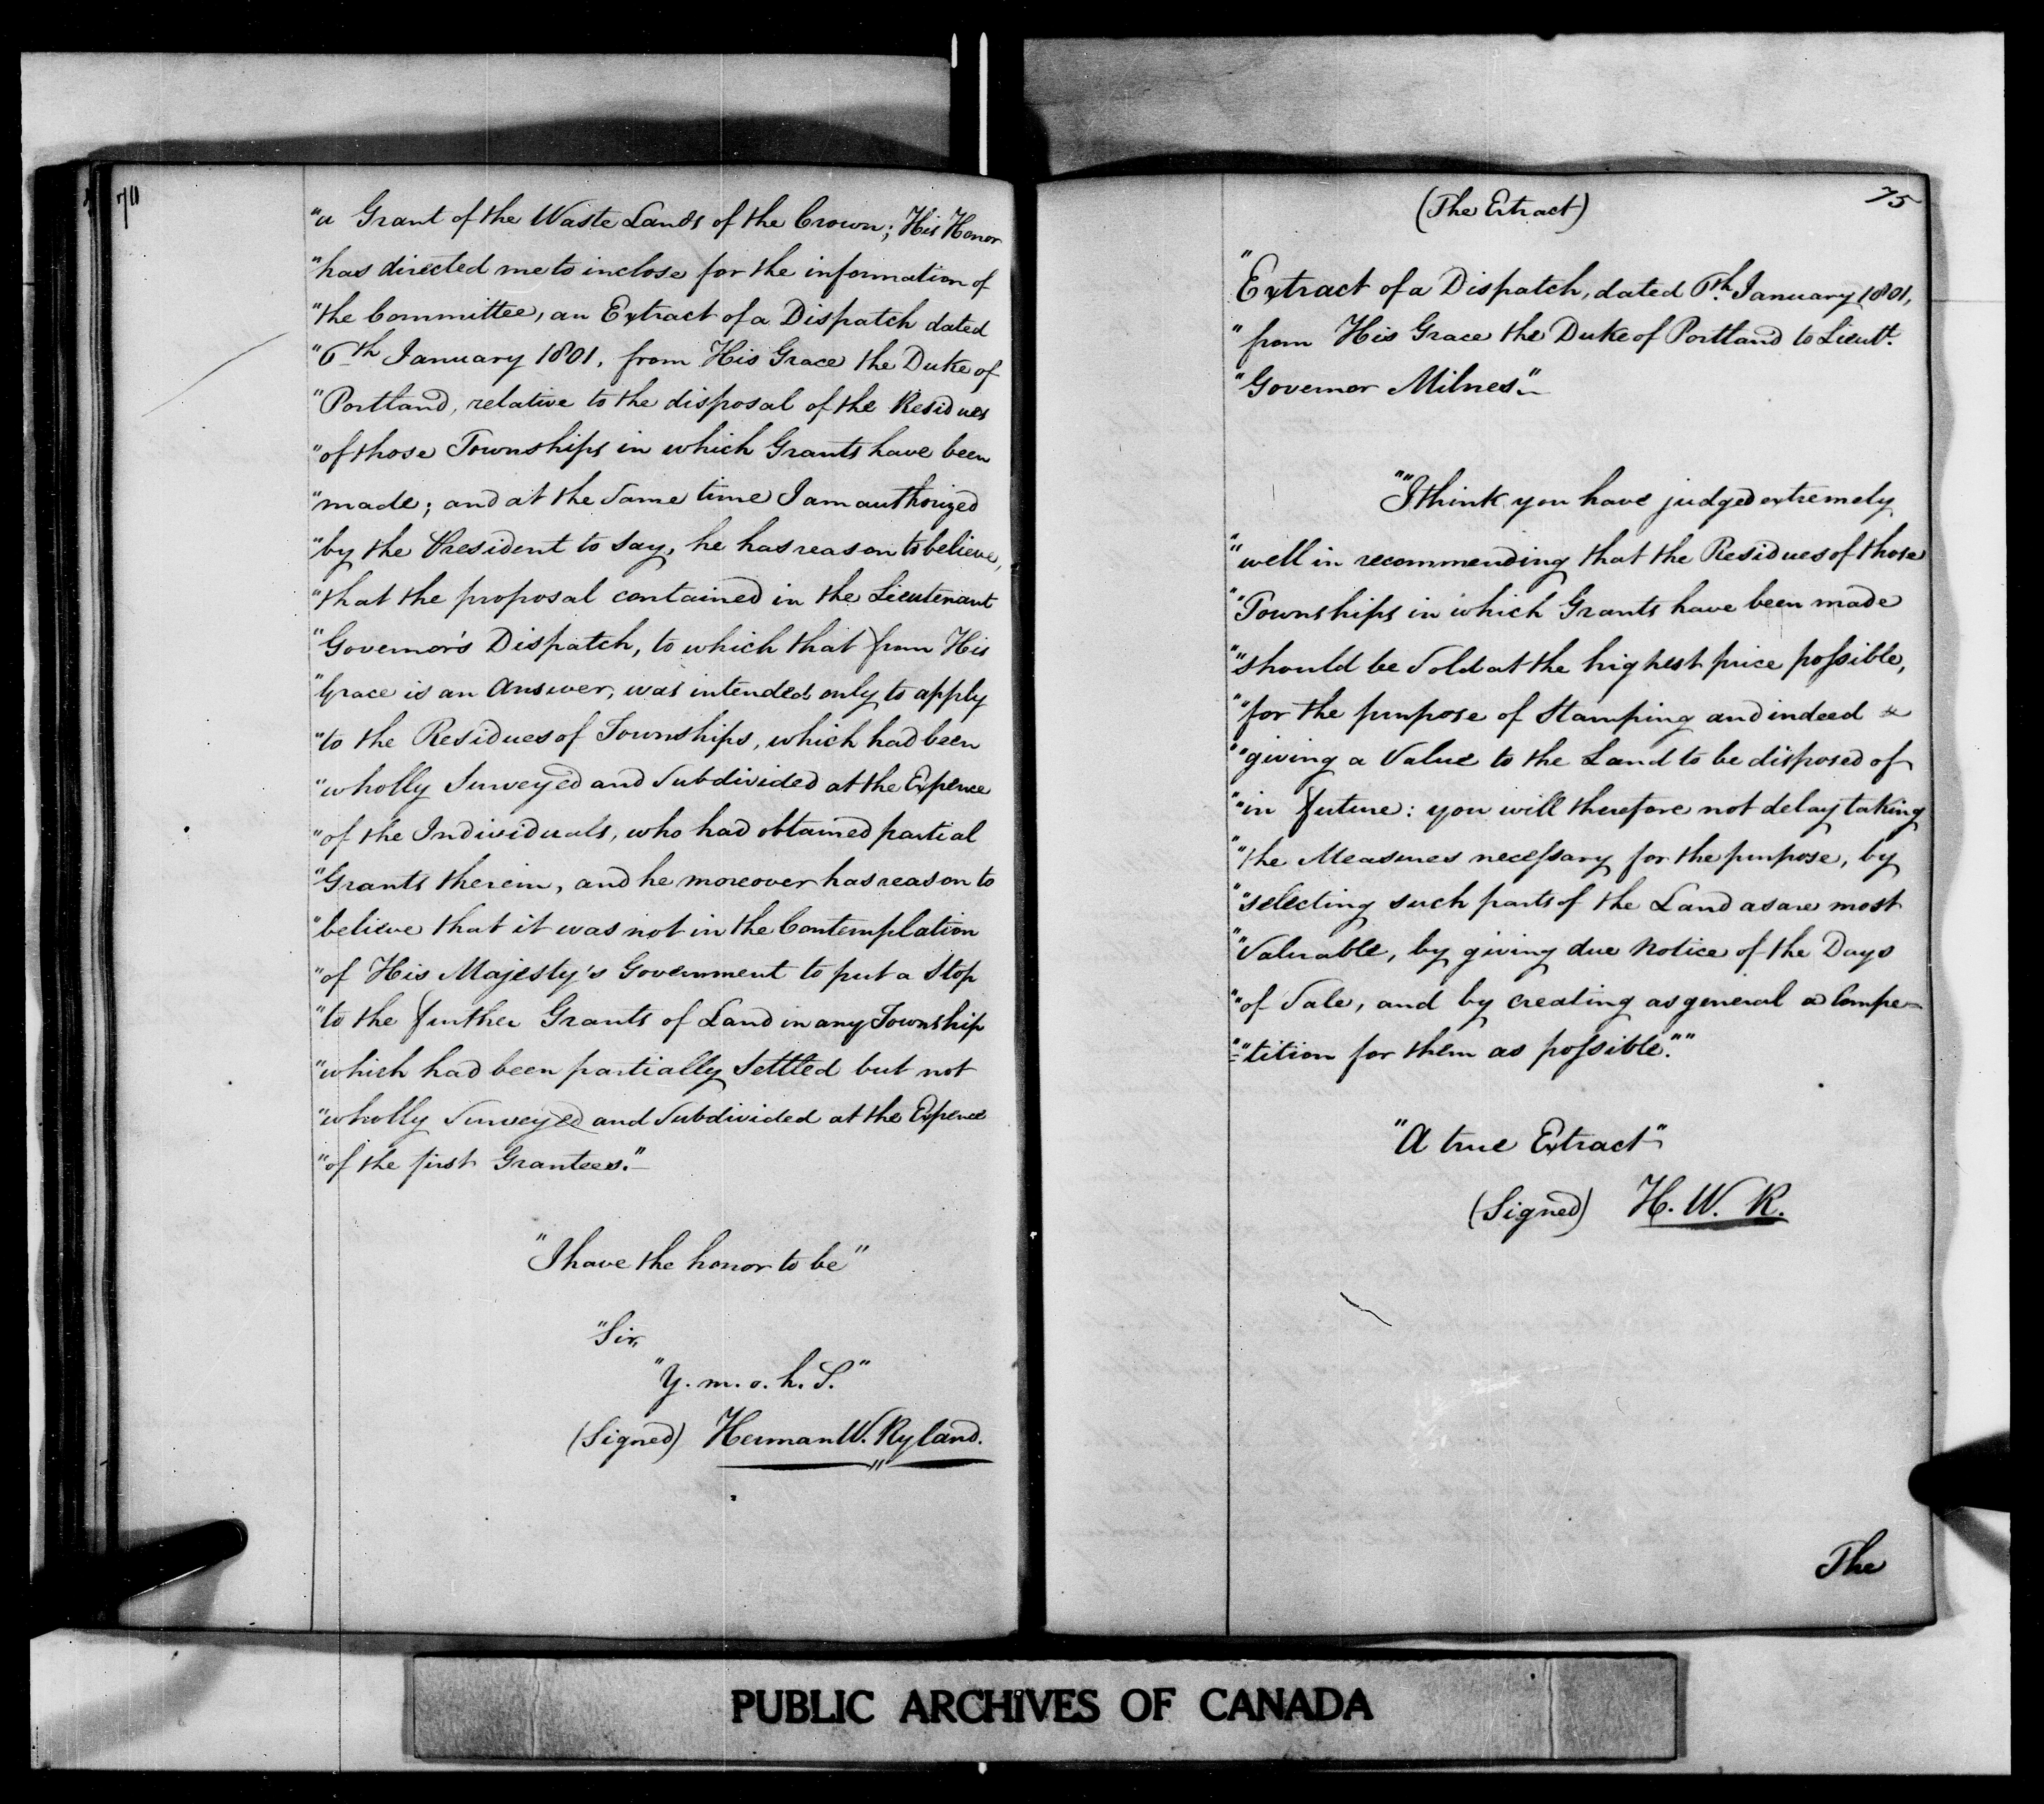 "a Grant of the Waste Lands of the Crown; His Honor
"has directed me to inclose for the information of
"the Committee, an Extract of a Dispatch dated
"6th January 1801, from His Grace the Duke of
"Portland, relative to the disposal of the Residues
"of those Townships in which Grants have been
"made; and at the Same time I am authorized
"by the President to say, he has reason to believe,
"that the proposal contained in the Lieutenant
"Governor's Dispatch, to which that from His
"Grace is an Answer, was intended only to apply
"to the Residues of Townships, which had been
"wholly Surveyed and Subdivided at the Expence
"of the Individuals, who had obtained partial
"Grants therein, and he moreover has reason to
"believe that it was not in the Contemplation
"of His Majesty's Government to put a Stop
"to the further Grants of Land in any Township
"which had been partially Settled but not
"wholly Surveyed and Subdivided at the Expence
"of the first Grantees."
"I have the honor to be"
"Sir,
"Y. m. o. h. S."
(Signed) Herman W. Ryland.
75
(The Extract)
"Extract of a Dispatch, dated 6th January 1801,
"from His Grace the Duke of Portland to Lieutt.
"Governor Milnes."
""I think you have judged extremely
""well in recommending that the Residues of those
""Townships in which Grants have been made
""should be Sold at the highest price possible,
""for the purpose of Stamping and indeed
""giving a Value to the Land to be disposed of
""in future: you will therefore not delay taking
""the Measures necessary for the purpose, by
""selecting such parts of the Land as are most
""Valuable, by giving due Notice of the Days
""of Sale, and by creating as general a Compe=
""=tition for them as possible.""
"A true Extract"
(Signed) H. W. R.
The
PUBLIC ARCHIVES OF CANADA